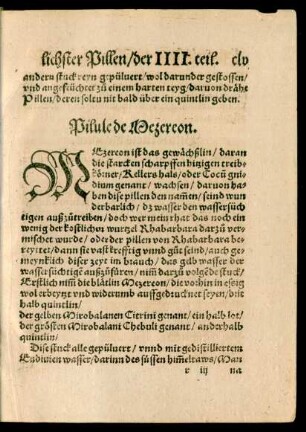 lichster Pillen/der IIII. teil. clv
andern stuck reyn gepüluert/wol darunder gestossen/
vnd angefeüchtet zu einem harten teyg/daruon dräht
Pillen/deren solcu nit bald über ein quintlin geben.
Pilule de Mezereon.
MEzereon ist das gewächßlin/ daran
die starcken scharpffen hitzigen treib-
körner/Kellers hals/oder Cocū gni-
dium genant/ wachsen/ daruon ha-
bon dise pillen den namen/ seind wun
derbarlich/ dz wasser den wassersüch
tigen auß zůtreiben/ doch wer mein rhat das noch ein
wenig der kostlichen wurzel Rhabarbara darzů ver-
mischet wurde/ oder der pillen von Rhabarbara be-
reytet/dann sie vast krefftig vnnd gůt seind/auch ge-
meynklich diser zeyt im brauch/ das gelb wasser der
wassersüchtige außzüfüren/ nim̄ darzů volgēde stuck/
Erstlich nim̄ die blätlin Mezereon/ die vorhin in essig
wol erbeyzt vnd widerumb außgedrucknet seyen/ die
halb quintlin/
der gelben Mirobalanen Citrini genant/ ein halb lot/
der grösten Mirobalani Chebuli genant/ anderhalb
quintlin/
Dise stuck alle gepüluert/ vnnd mit gedistilliertem
Endiuien wasser/ darinn des süssen him̄eltaws/ Man
r iij na